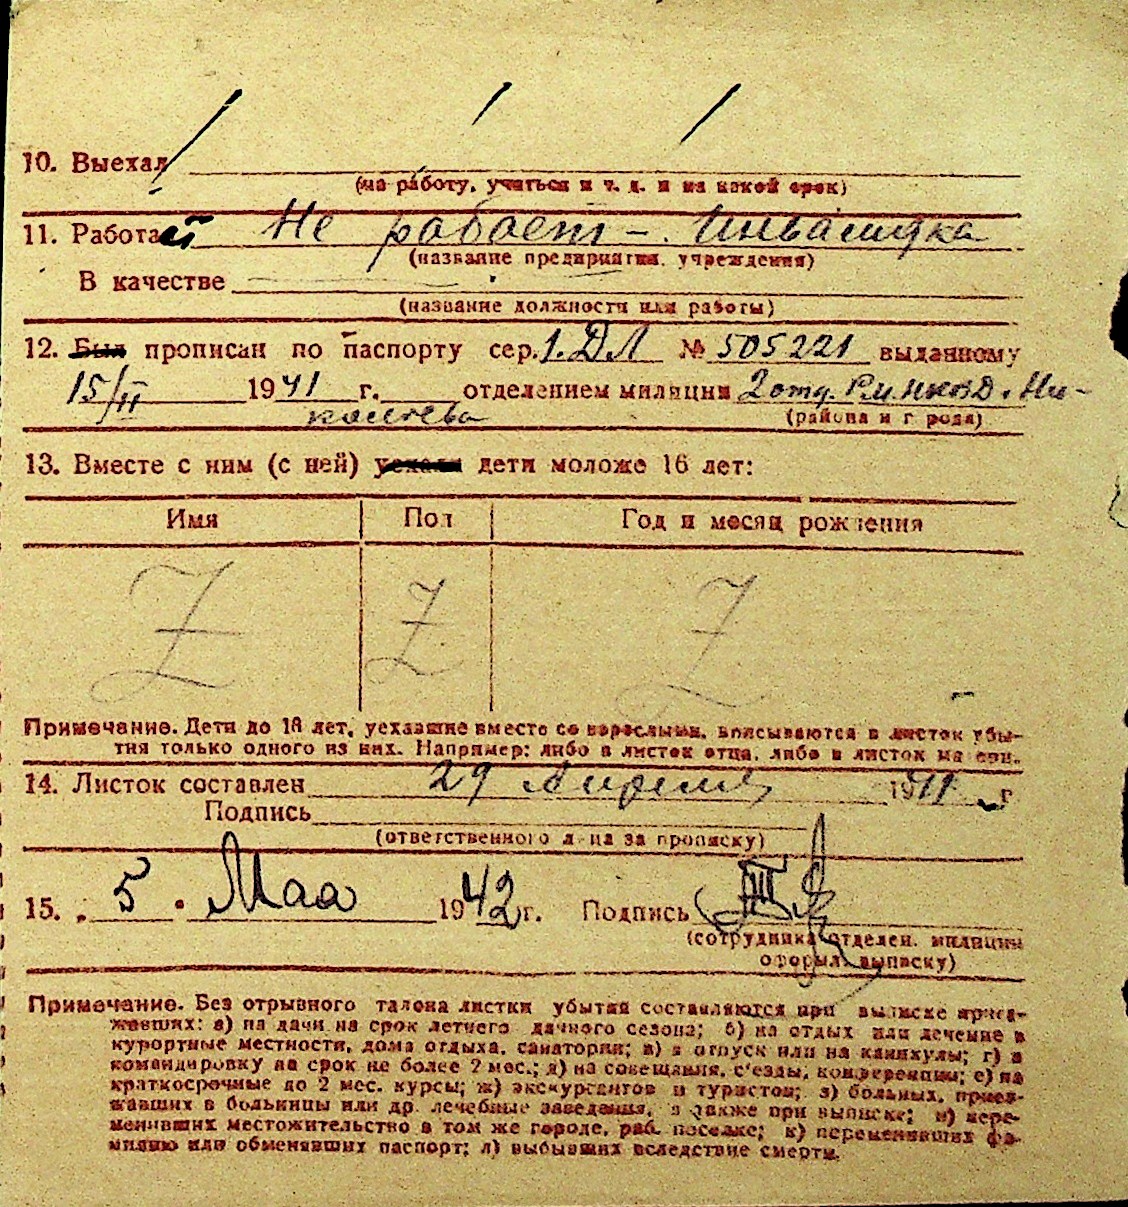 10. Выехал
(на работу, учиться и т. д. и на какой срок)
11. Работает Не работает - Инвалидка
(название предприятия, учреждения)
В качестве
(название должности или работы)
12. Был прописан по паспорту сер. 1.ДЛ № 505221 выданному
15/II 1941 г. отделением милиции 2 отд. Р.М. НКВД. Ни-
колаева
(района и города)
13. Вместе с ним (с ней) уехали дети моложе 16 лет:
Имя Пол Год и месяц рождения
Z Z Z
Примечание. Дети до 16 лет, уехавшие вместе со взрослыми, вписываются в листок убы-
тия только одного из них. Например: либо в листок отца, либо в листок матери.
14. Листок составлен 29 Апреля 19 г
Подпись
(ответственного лица за прописку)
15. 5 Мая 1942 г. Подпись
(сотрудника отделен. милиции
оформл. выписку)
Примечание. Без отрывного талона листки убытия составляются при выписке приез-
жавших: а) на дачи на срок летнего дачного сезона; б) на отдых или лечение в
курортные местности, дома отдыха, санатории; в) в отпуск или на каникулы; г) в
командировку на срок не более 2 мес.; д) на совещания, с'езды, конференции; е) на
краткосрочные до 2 мес. курсы; ж) экскурсантов и туристов; з) больных, приез-
жавших в больницы или др. лечебные заведения, а также при выписке; и) пере-
менивших местожительство в том же городе, раб. поселке; к) переменивших фа-
милию или обменявших паспорт; л) выбывших вследствие смерти.